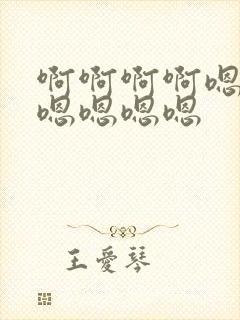 啊啊啊啊嗯
嗯嗯嗯嗯
王爱琴